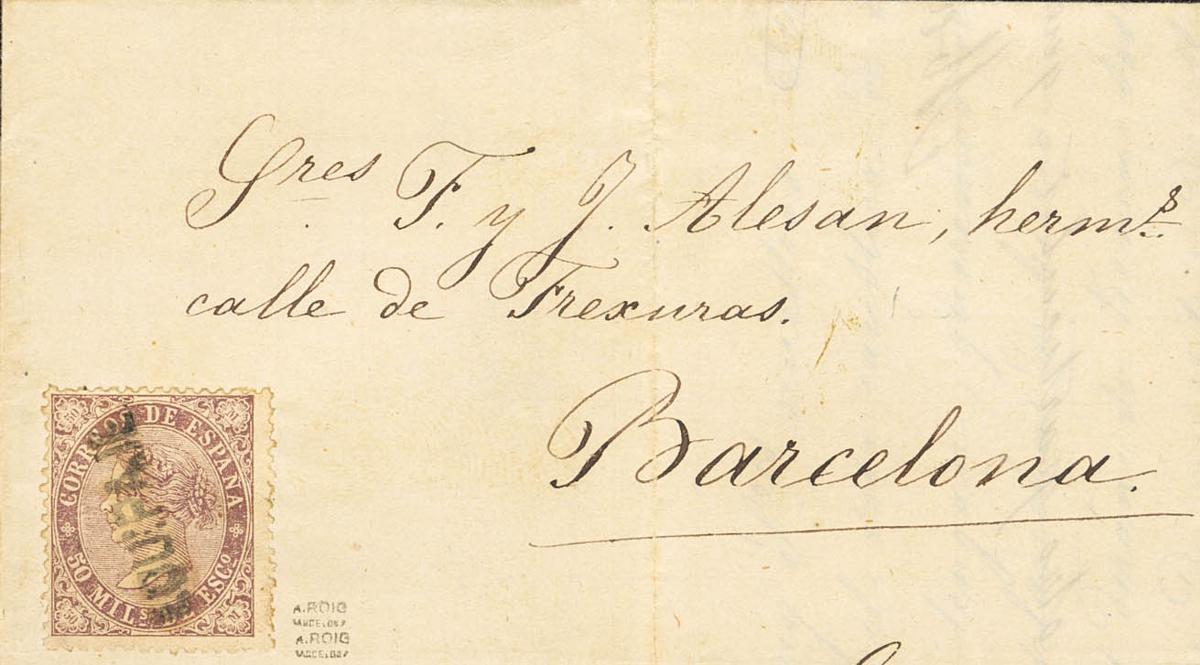 Sres F. y J. Alesan, hermˢ.
calle de Frexuras.
Barcelona.
CORREOS DE ESPAÑA
50 MILS DE ESCO
50 M
50 M
A.ROIG
BARCELONA
A.ROIG
BARCELONA